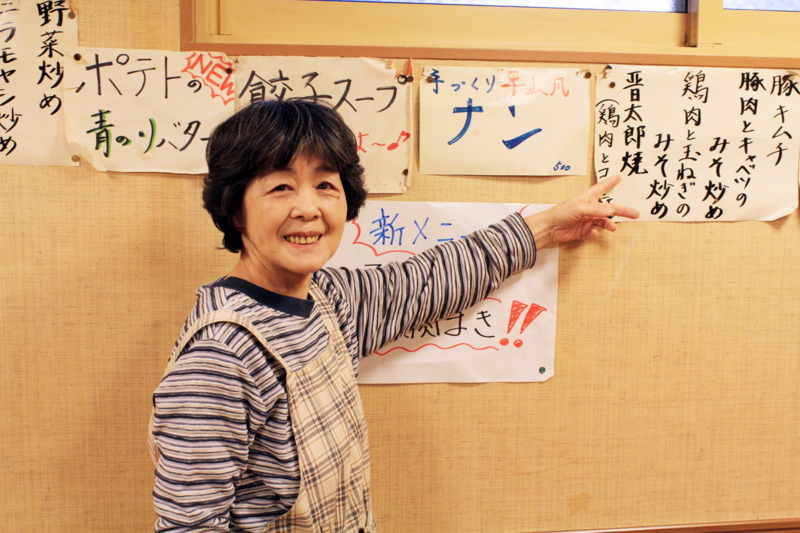 野菜炒め
ニラモヤシ炒め
ポテトの
NEW
青のりバター
餃子スープ
よ～♪
手づくり平山風
ナン
500
豚キムチ
豚肉とキャベツの
みそ炒め
鶏肉と玉ねぎの
みそ炒め
晋太郎焼
(鶏肉とコ
新メニ
!!